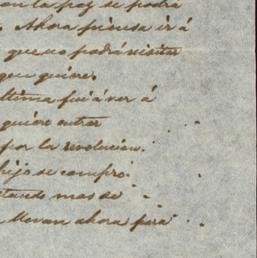 en la paz se podrá
. Ahora piensa ir á
que no podrá visitar
que quiere.
última fui á ver á
quiere entrar
por la revolucion.
hijo se compró
mas de
llevan ahora para